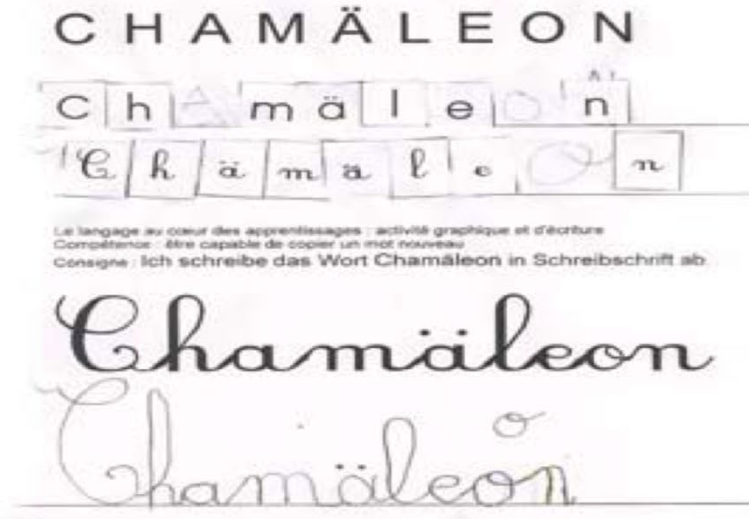 CHAMÄLEON
ChAmäleOn
ChämäleOn
Le langage au cœur des apprentissages : activité graphique et d'écriture
Compétence : être capable de copier un mot nouveau
Consigne : Ich schreibe das Wort Chamäleon in Schreibschrift ab.
Chamäleon
Chamäleon